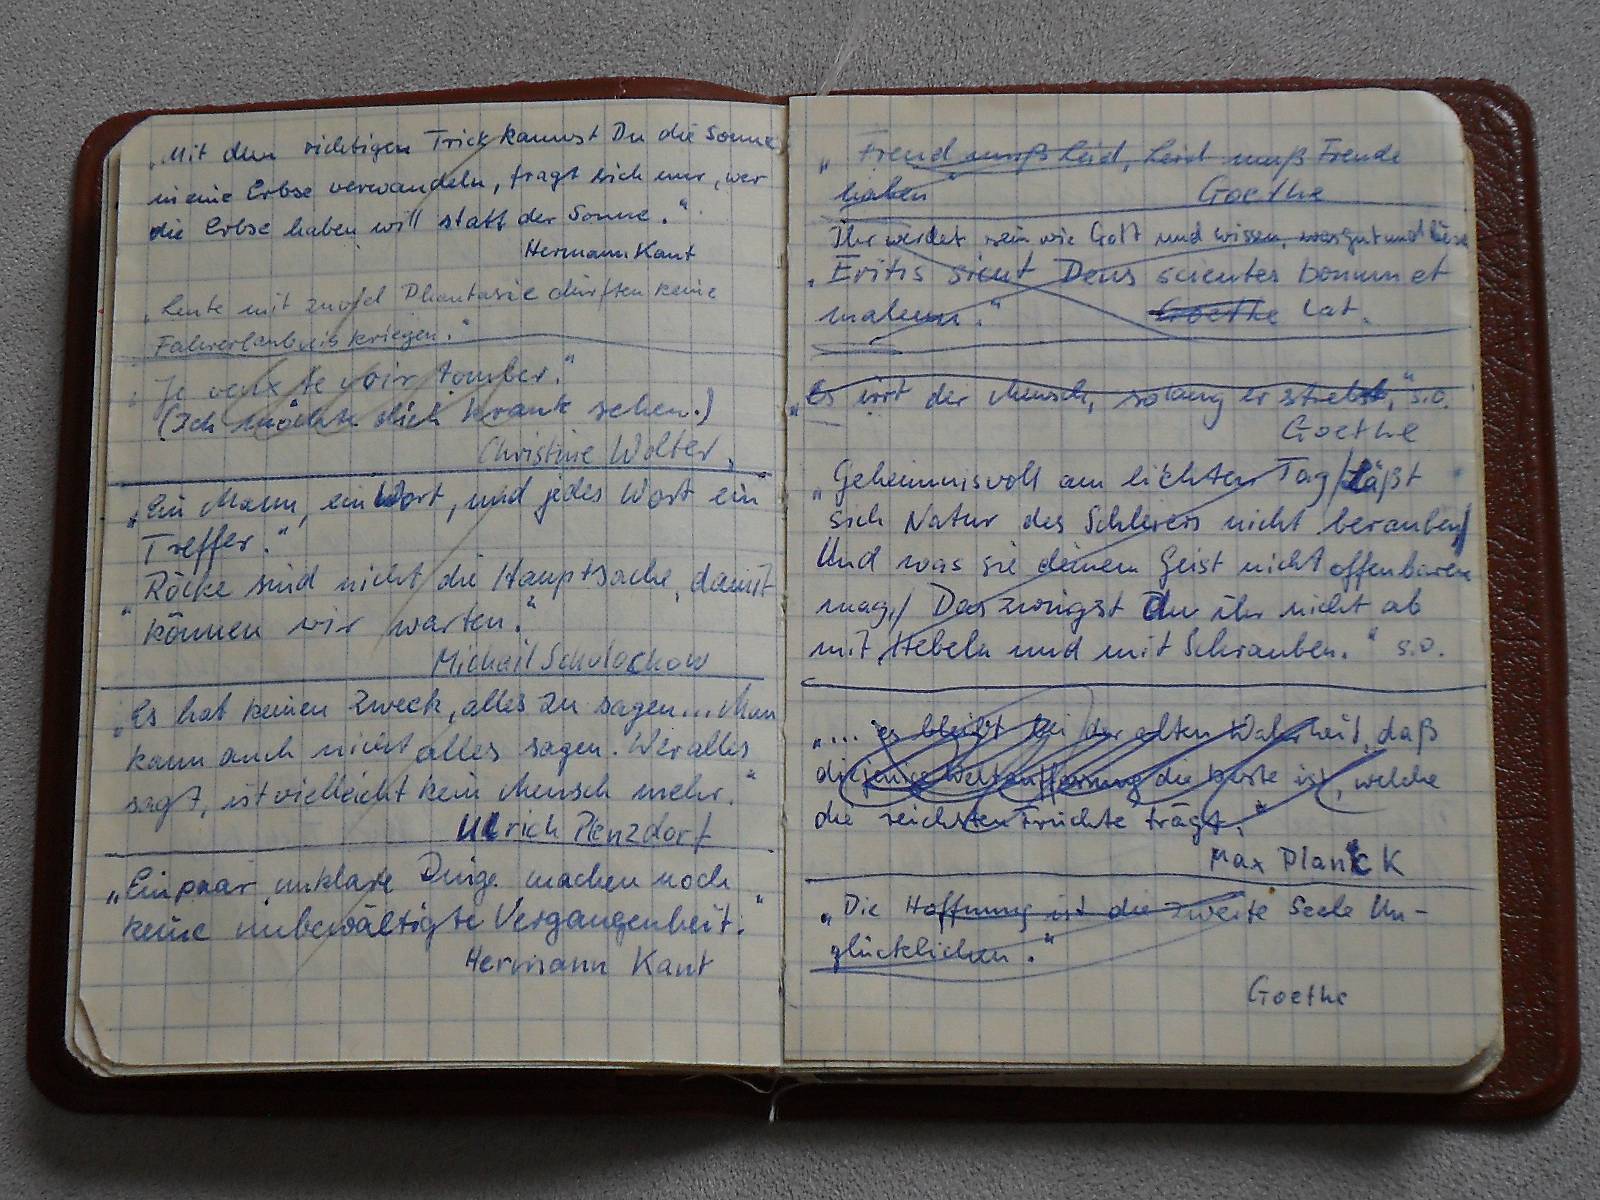 „Mit dem richtigen Trick kannst Du die Sonne
in eine Erbse verwandeln, fragt sich nur, wer
die Erbse haben will statt der Sonne."
Hermann Kant
„Leute mit zuviel Phantasie dürften keine
Fahrerlaubnis kriegen."
„Je veux te voir tomber."
(Ich möchte dich krank sehen.)
Christine Wolter
„Ein Mann, ein Wort, und jedes Wort ein
Treffer."
"Röcke sind nicht die Hauptsache, damit
können wir warten."
Michail Scholochow
„Es hat keinen Zweck, alles zu sagen... Man
kann auch nicht alles sagen. Wer alles
sagt, ist vielleicht kein Mensch mehr."
Ulrich Plenzdorf
„Ein paar unklare Dinge machen noch
keine unbewältigte Vergangenheit."
Hermann Kant
„Freud muß Leid, Leid muß Freude
haben"
Goethe
Ihr werdet sein wie Gott und wissen, was gut und böse
„Eritis sicut Deus scientes bonum et
malum." Goethe Lat.
„Es irrt der Mensch, solang er strebt," s.o.
Goethe
„Geheimnisvoll am lichten Tag/Läßt
sich Natur des Schleiers nicht berauben/
Und was sie deinem Geist nicht offenbaren
mag,/ Das zwingst Du ihr nicht ab
mit Hebeln und mit Schrauben." s.o.
„... es bleibt bei der alten Wahrheit, daß
diejenige Weltauffassung die beste ist, welche
die reichsten Früchte trägt."
Max Planck
„Die Hoffnung ist die zweite Seele Un-
glücklichen."
Goethe